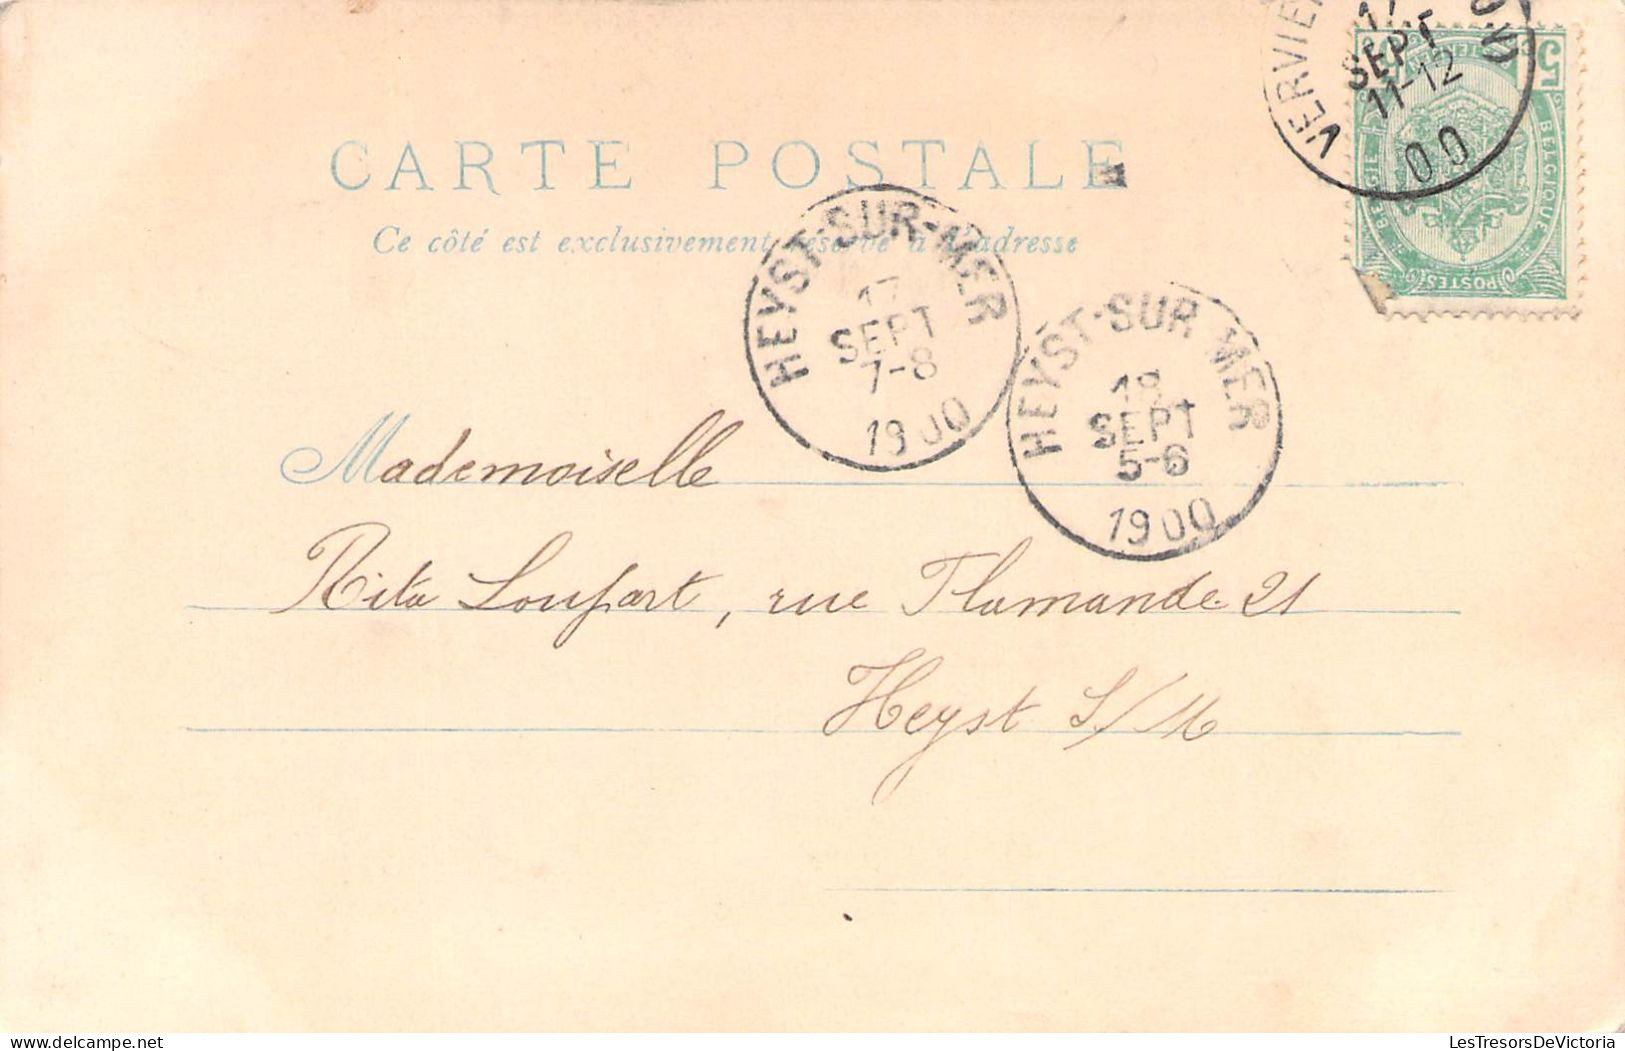 VERVIE
17
SEPT
11-12
00
5
BELGIE
BELGIQUE
POSTES
CARTE POSTALE
Ce côté est exclusivement réservé à l'adresse
HEYST-SUR-MER
17
SEPT
7-8
1900
HEYST-SUR MER
18
SEPT
5-6
1900
Mademoiselle
Rita Loufart, rue Flamande 21
Heyst S/M
LesTresorsDeVictoria